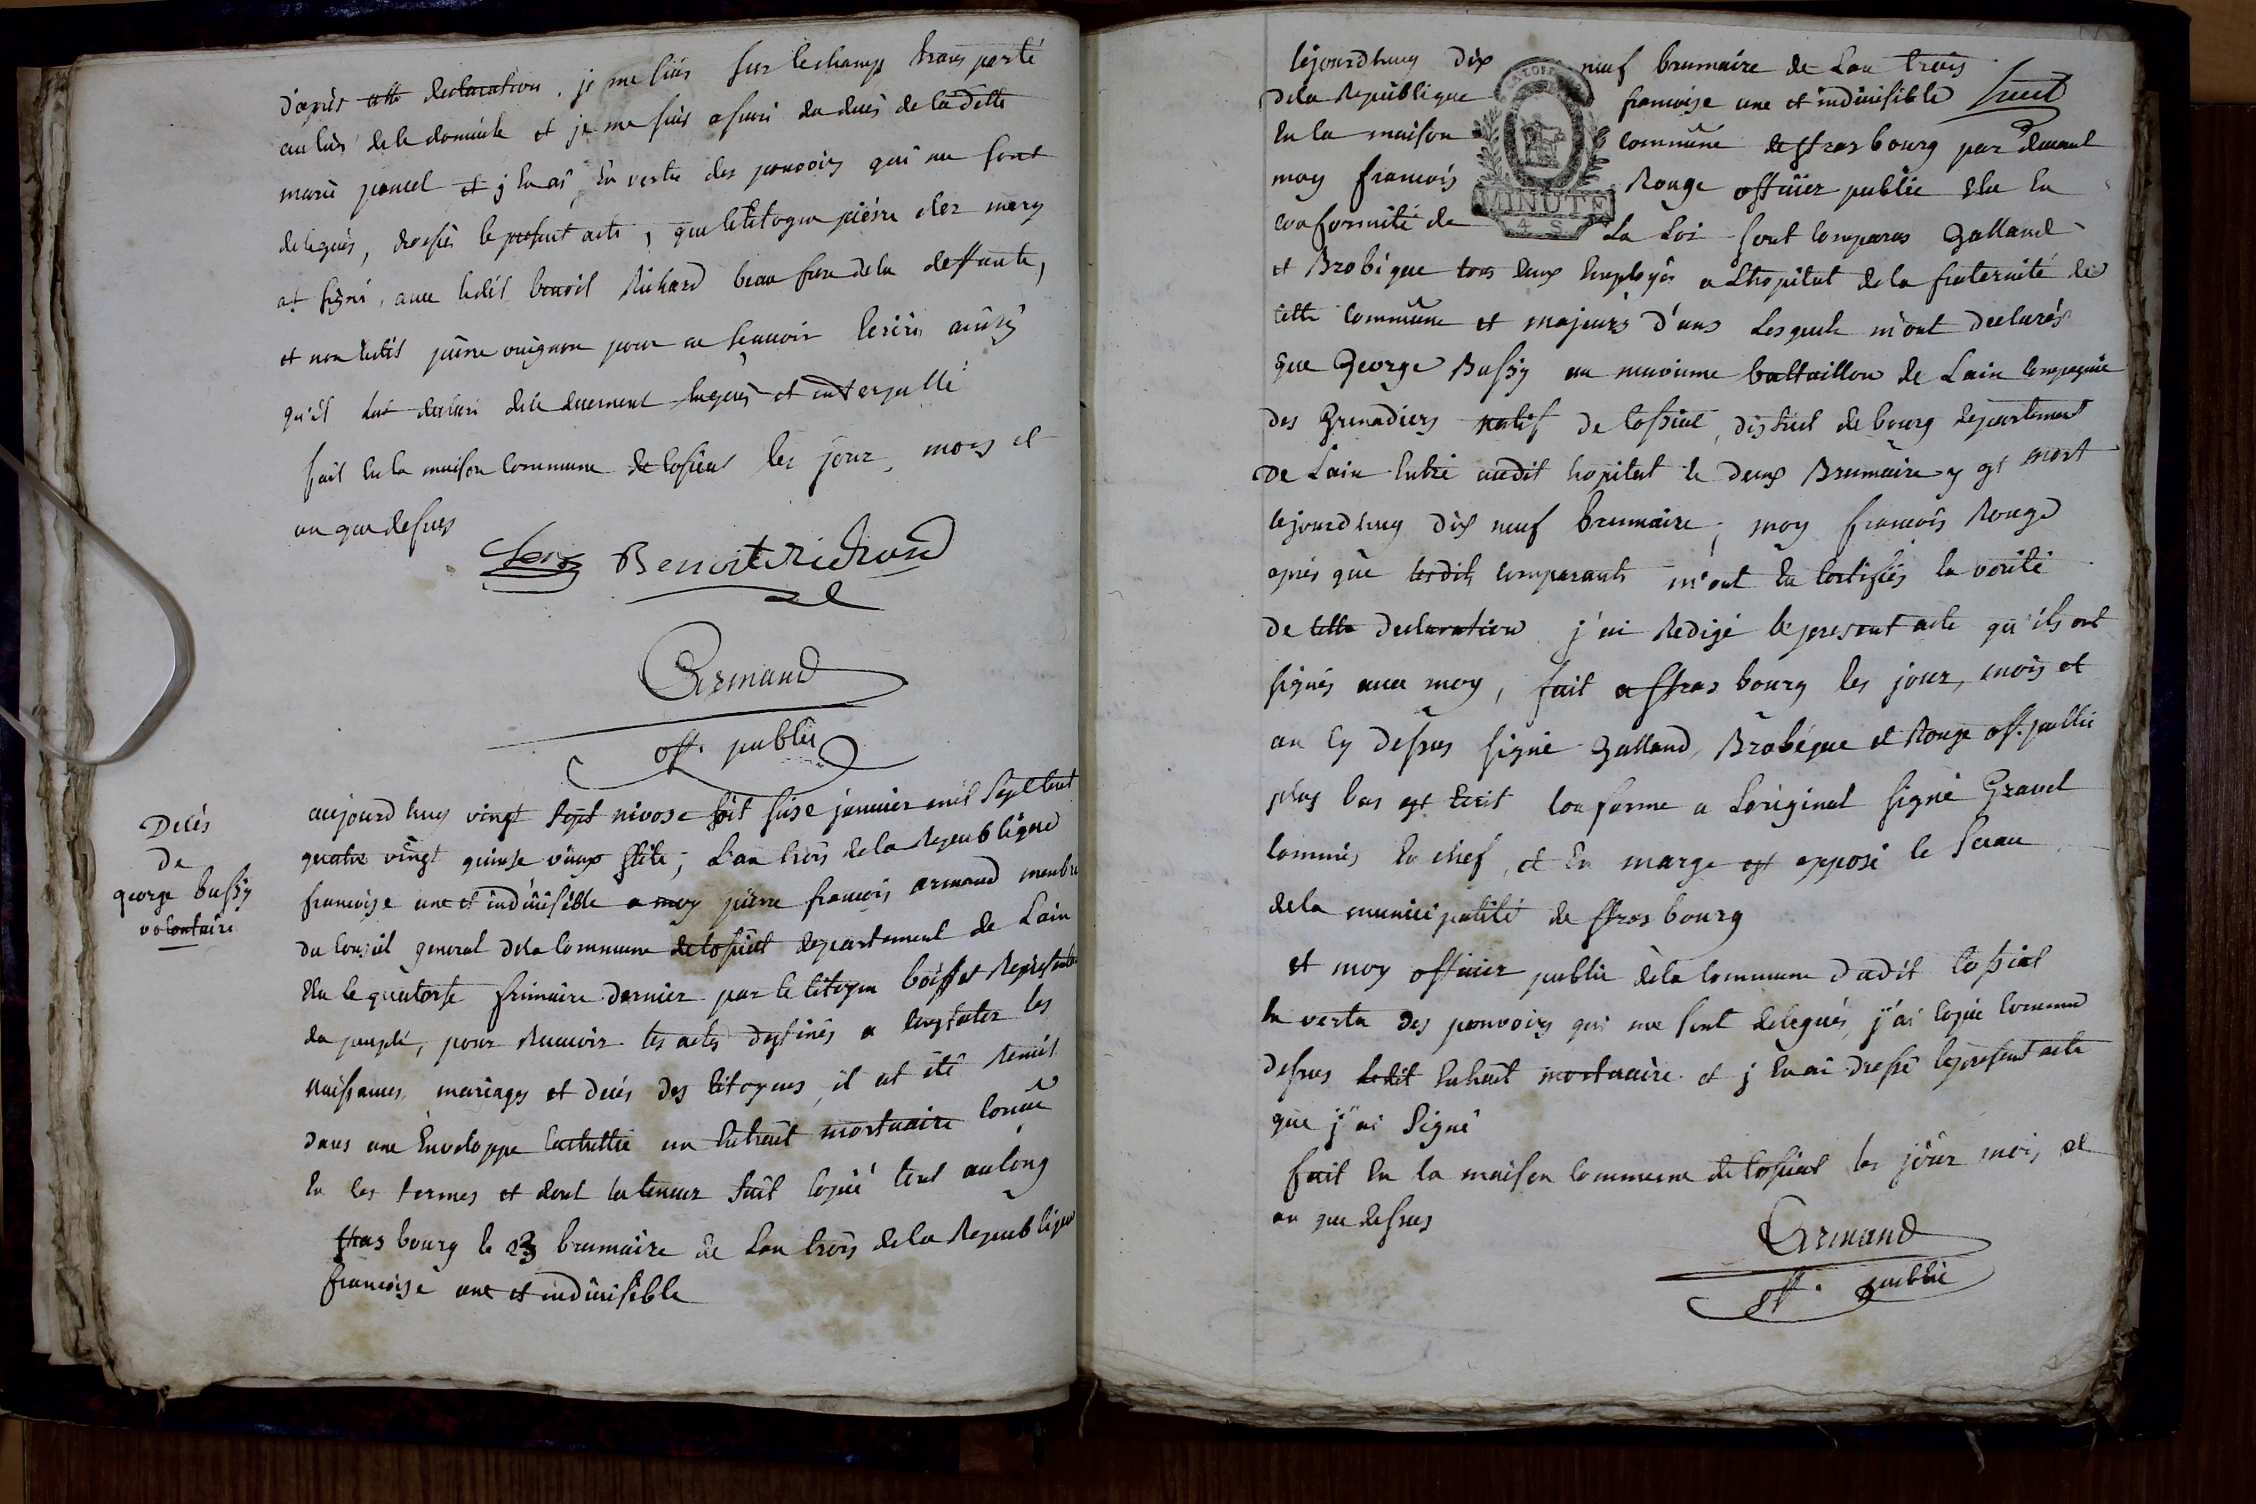 d'après cette declaration, je me suis sur le champ transporté
au lieu de le domicile et je me suis assuré du decès de la dette
marie poncet et j'en ai en vertu des pouvoirs qui me sont
delegués, dressés le present acte, que le citoyen pierre mery
at signé, avec ledit benoit Richard beau frere dela deffunte,
et non ledit pierre pour ne scavoir
qu'il at declaré dele duement et interpellé
fait en la maison commune de Cossiat les jour, mois et
an que dessus
Benoit Richard
Armand
off. public
Decès
de
george bussy
volontaire
aujourdhuy vingt sept nivose soit seise janvier mil sept cent
quatre vingt quinse vieux stile, L'an trois dela Republique
francoise une et indivisible a moy pierre francois armand membre
du conseil general dela commune de Cossiat departement de Lain
elu le quatorse frimaire dernier par le citoyen boisset Represent
du peuple, pour Recevoir les actes destinés a constater les
naissances, mariages et decés des citoyens, il at été Remis
dans une Enveloppe Cachettée un Extrait mortuaire conçu
en ces termes et dont la teneur suit copié tout au long
strasbourg le 23 brumaire de Lan trois dela Republique
francoise une et indivisible
Cejourdhuy dix neuf brumaire de Lan trois
dela Republique francoise une et indivisible
MINUTE
4 S
En la maison commune de strasbourg par devant
moy francois Rouge officier public Elu en
conformité de La Loi sont comparus Galland
et Brobèque tous deux Employés a Lhopital dela fraternité de
cette commune et majeurs d'ans Lesquels m'ont declarés
que George Bussy au neuvieme battaillon de Lain compagnie
des Grenadiers natif de Cossiat, district de bourg departement
De Lain Entré audit hopital le deux Brumaire y est mort
cejourdhuy dix neuf brumaire, moy francois Rouge
après que lesdits comparants m'ont Eu Certifiés la vérité
de cette declaration j'ai Redigé le present acte qu'ils ont
signés avec moy, fait a strasbourg les jour, mois et
an Cy dessus signé Galland, Brobèque et Rouge off. public
plus bas est Ecrit conforme a Loriginal signé Gravel
commis En chef, et En marge est apposé le Sceau
dela municipalité de strasbourg
et moy officier public dela commune dudit Cossiat
En vertu des pouvoirs qui me sont delegués, j'ai copié comme
dessus ledit Extrait mortuaire et j'En ai dressé le present acte
que j'ai signé
fait En la maison commune de Cossiat les jour mois et
an que dessus
Armand
off. public